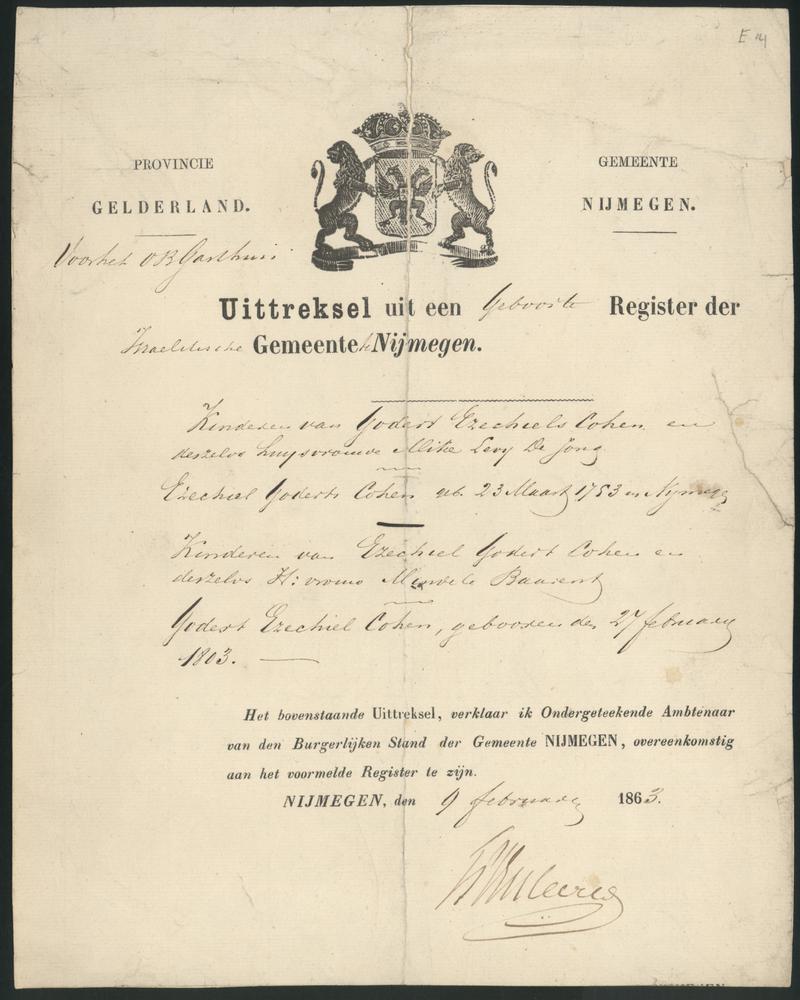 E 14
PROVINCIE
GELDERLAND.
GEMEENTE
NIJMEGEN.
Voor het OB Gasthuis
Uittreksel uit een Geboorte Register der
Israelitische Gemeente te Nijmegen.
Kinderen van Godert Ezechiels Cohen en
deszelvs huysvrouwe Mike Levy De Jong
Ezechiel Goderts Cohen geb. 23 Maart 1753 in Nymegen
Kinderen van Ezechiel Godert Cohen en
deszelvs H: vrouw Baarent
Godert Ezechiel Cohen, gebooren den 27 february
1803.
Het bovenstaande Uittreksel, verklaar ik Ondergeteekende Ambtenaar
van den Burgerlijken Stand der Gemeente NIJMEGEN, overeenkomstig
aan het voormelde Register te zijn.
NIJMEGEN, den 9 february 1863.